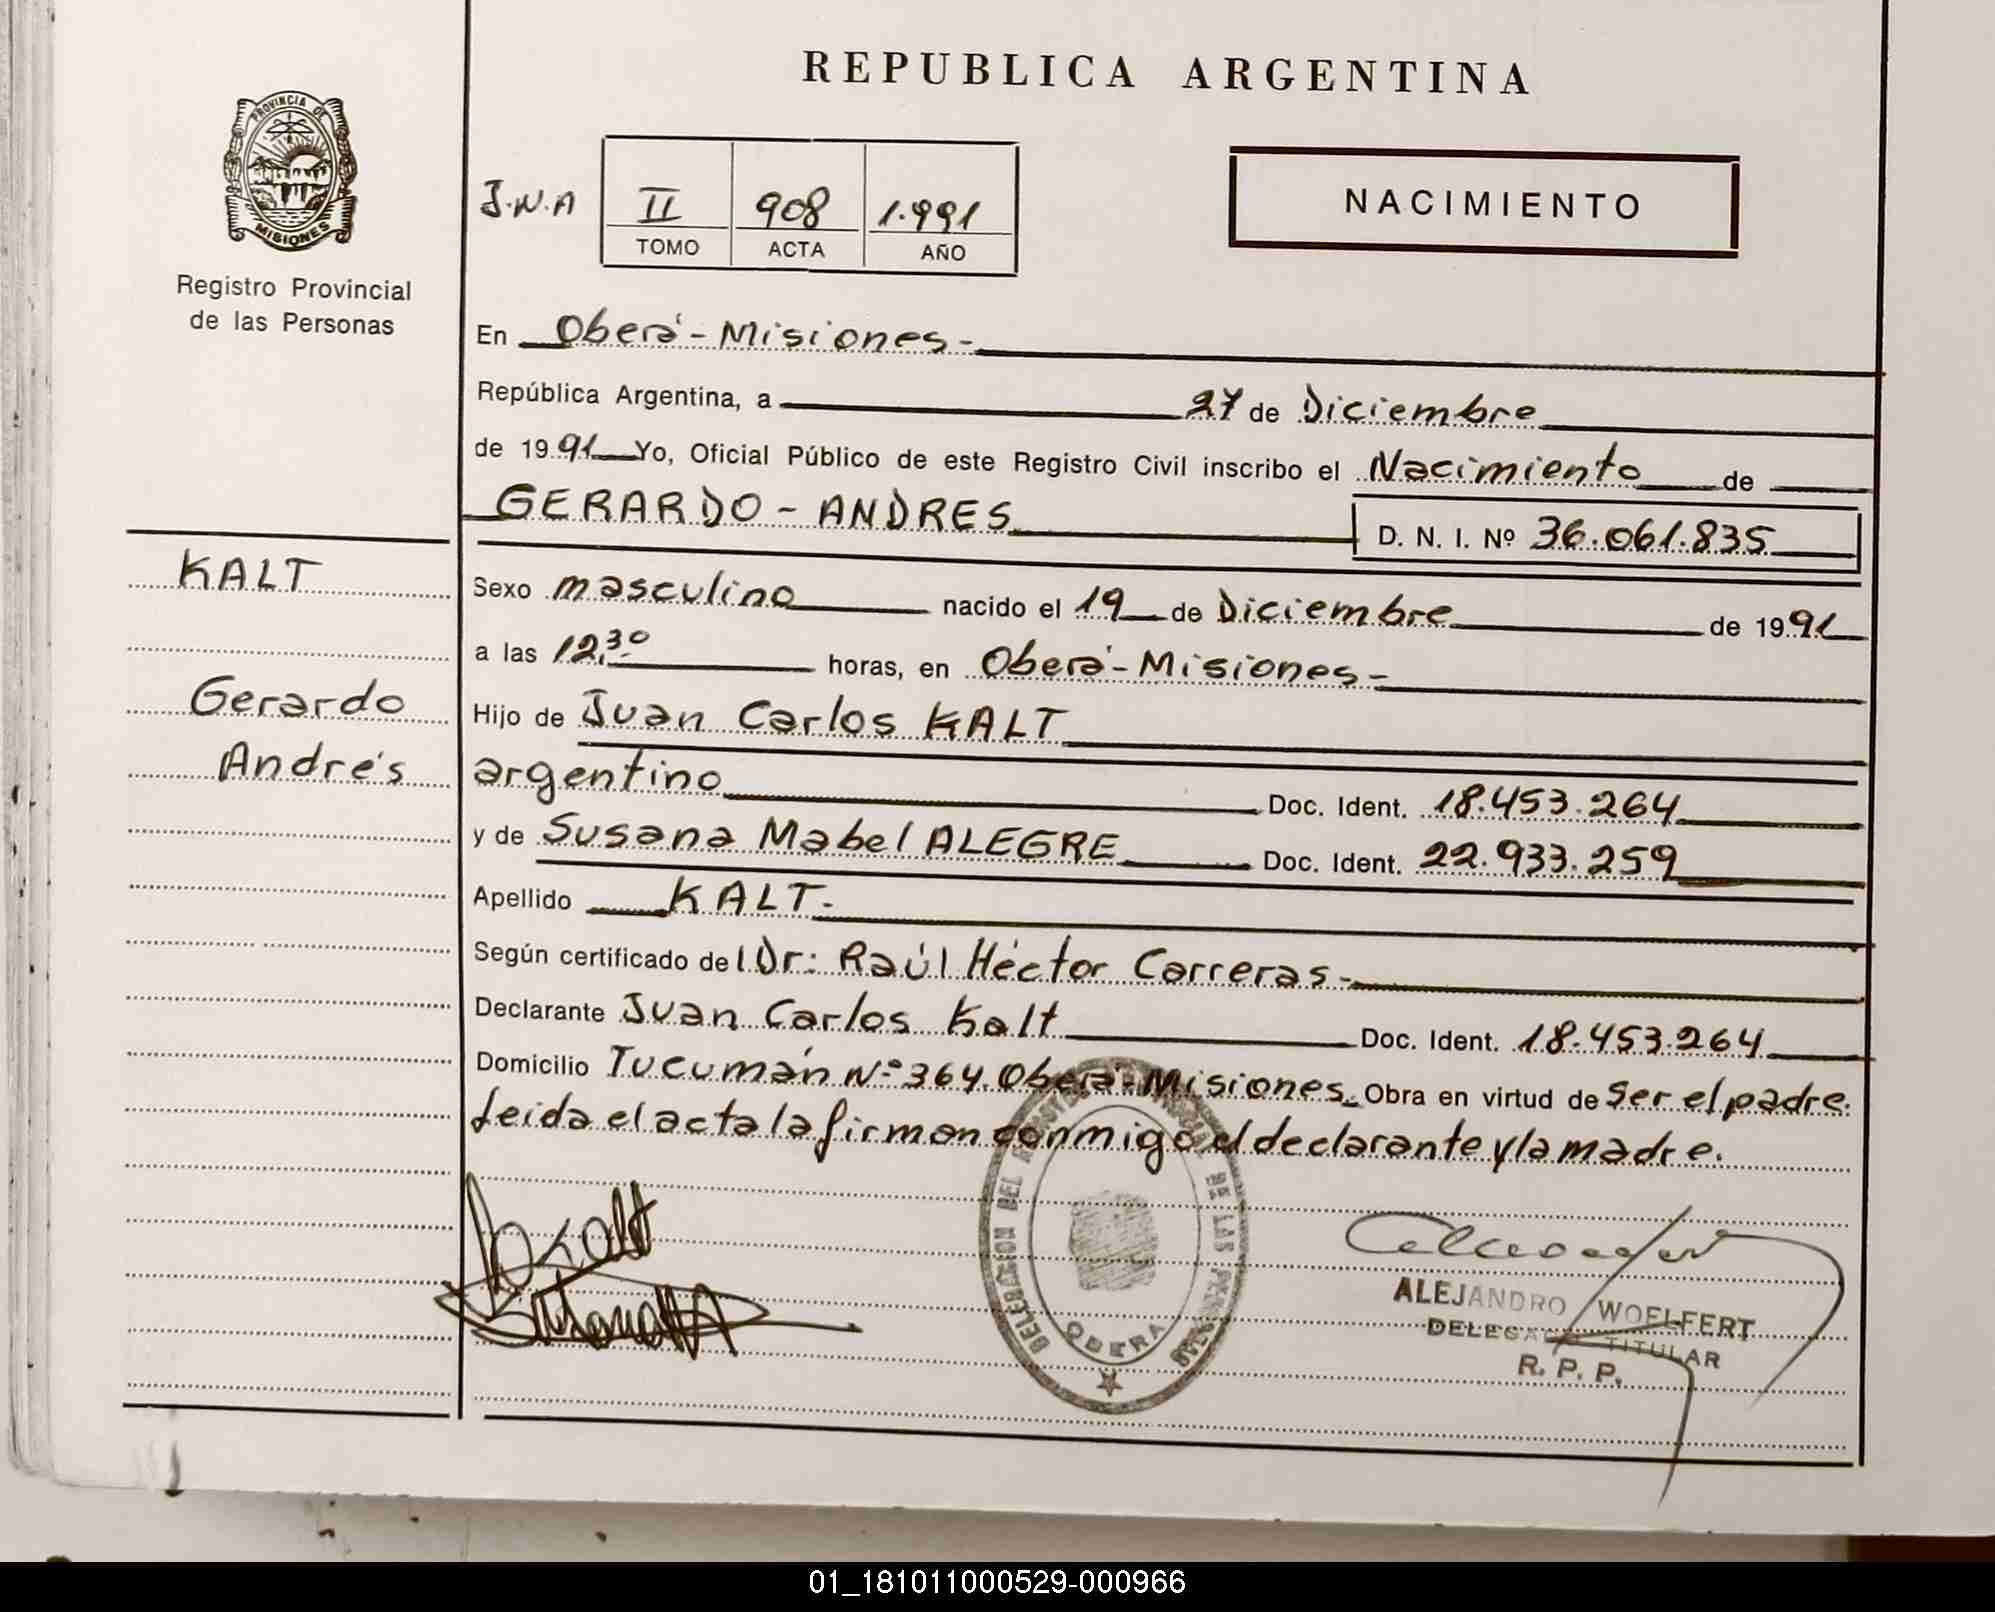 REPUBLICA ARGENTINA
PROVINCIA DE
MISIONES
Registro Provincial
de las Personas
J.N.A II 908 1.991
TOMO ACTA AÑO
NACIMIENTO
En Oberá - Misiones -
República Argentina, a 27 de Diciembre
de 1991 Yo, Oficial Público de este Registro Civil inscribo el Nacimiento de
GERARDO - ANDRES D. N. I. Nº 36.061.835
KALT
Gerardo
Andrés
Sexo masculino nacido el 19 de Diciembre de 1991
a las 12,30 horas, en Oberá - Misiones -
Hijo de Juan Carlos KALT
argentino Doc. Ident. 18.453.264
y de Susana Mabel ALEGRE Doc. Ident. 22.933.259
Apellido KALT.
Según certificado del Dr: Raúl Héctor Carreras -
Declarante Juan Carlos Kalt Doc. Ident. 18.453.264
Domicilio Tucumán Nº 364. Oberá - Misiones. Obra en virtud de Ser el padre.
Leida el acta la firman conmigo el declarante y la madre.
DELEGACION DEL REGISTRO PROVINCIAL DE LAS PERSONAS
OBERA
ALEJANDRO WOELFERT
DELEGADO TITULAR
R. P. P.
01_181011000529-000966